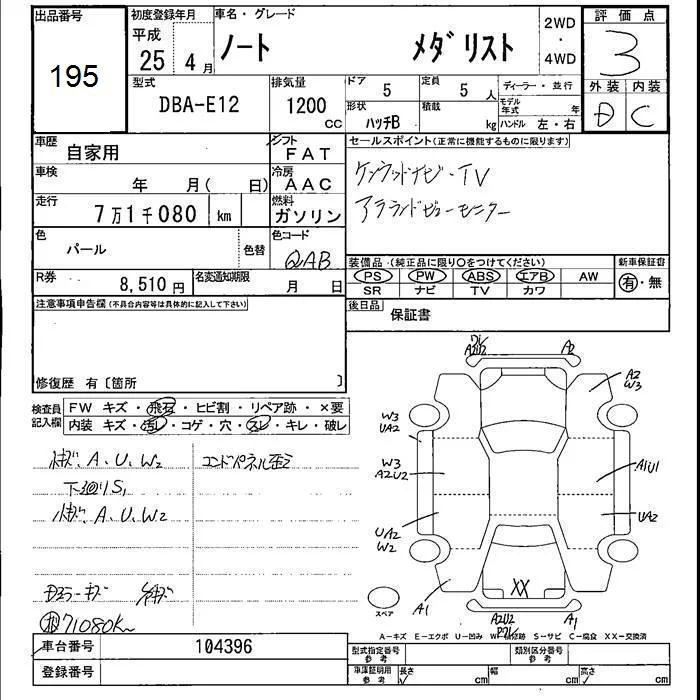 出品番号
195
初度登録年月
平成
25 4月
車名・グレード
ノート メダリスト
2WD
・
4WD
評価点
3
外装 内装
D C
型式
DBA-E12
排気量
1200
CC
ドア 5
定員 5 人
形状 ハッチB
積載 kg
ディーラー・並行
モデル年式 年
ハンドル 左・右
車歴
自家用
シフト
FAT
車検
年 月( 日)
冷房
AAC
走行
7万1千080 km
燃料
ガソリン
色
パール
色替
色コード
QAB
R券
8,510円
名変通知期限
月 日
セールスポイント(正常に機能するものに限ります)
ケンウッドナビ・TV
アラウンドビューモニター
装備品・(純正品に限り○をつけてください)
PS PW ABS エアB AW
SR ナビ TV カワ
新車保証書
有・無
後日品
保証書
注意事項申告欄(不具合内容等は具体的に記入して下さい)
修復歴 有〔箇所 〕
検査員記入欄
FW キズ・飛石・ヒビ割・リペア跡・×要
内装 キズ・汚レ・コゲ・穴・スレ・キレ・破レ
A、U、W2
エンドパネル歪ミ
下廻リS1
A、U、W2
Dミラーキズ
71080Km
A2U2
A2
A2
W3
W3
UA2
W3
A2U2
A1U1
UA2
W2
UA2
XX
A1
A2U2
A1
スペア
A-キズ E-エクボ U-凹み W-補修跡 S-サビ C-腐食 XX-交換済
車台番号 104396
登録番号
型式指定番号
参考
類別区分番号
参考
車庫証明用
参考
長さ cm
幅 cm
高さ cm